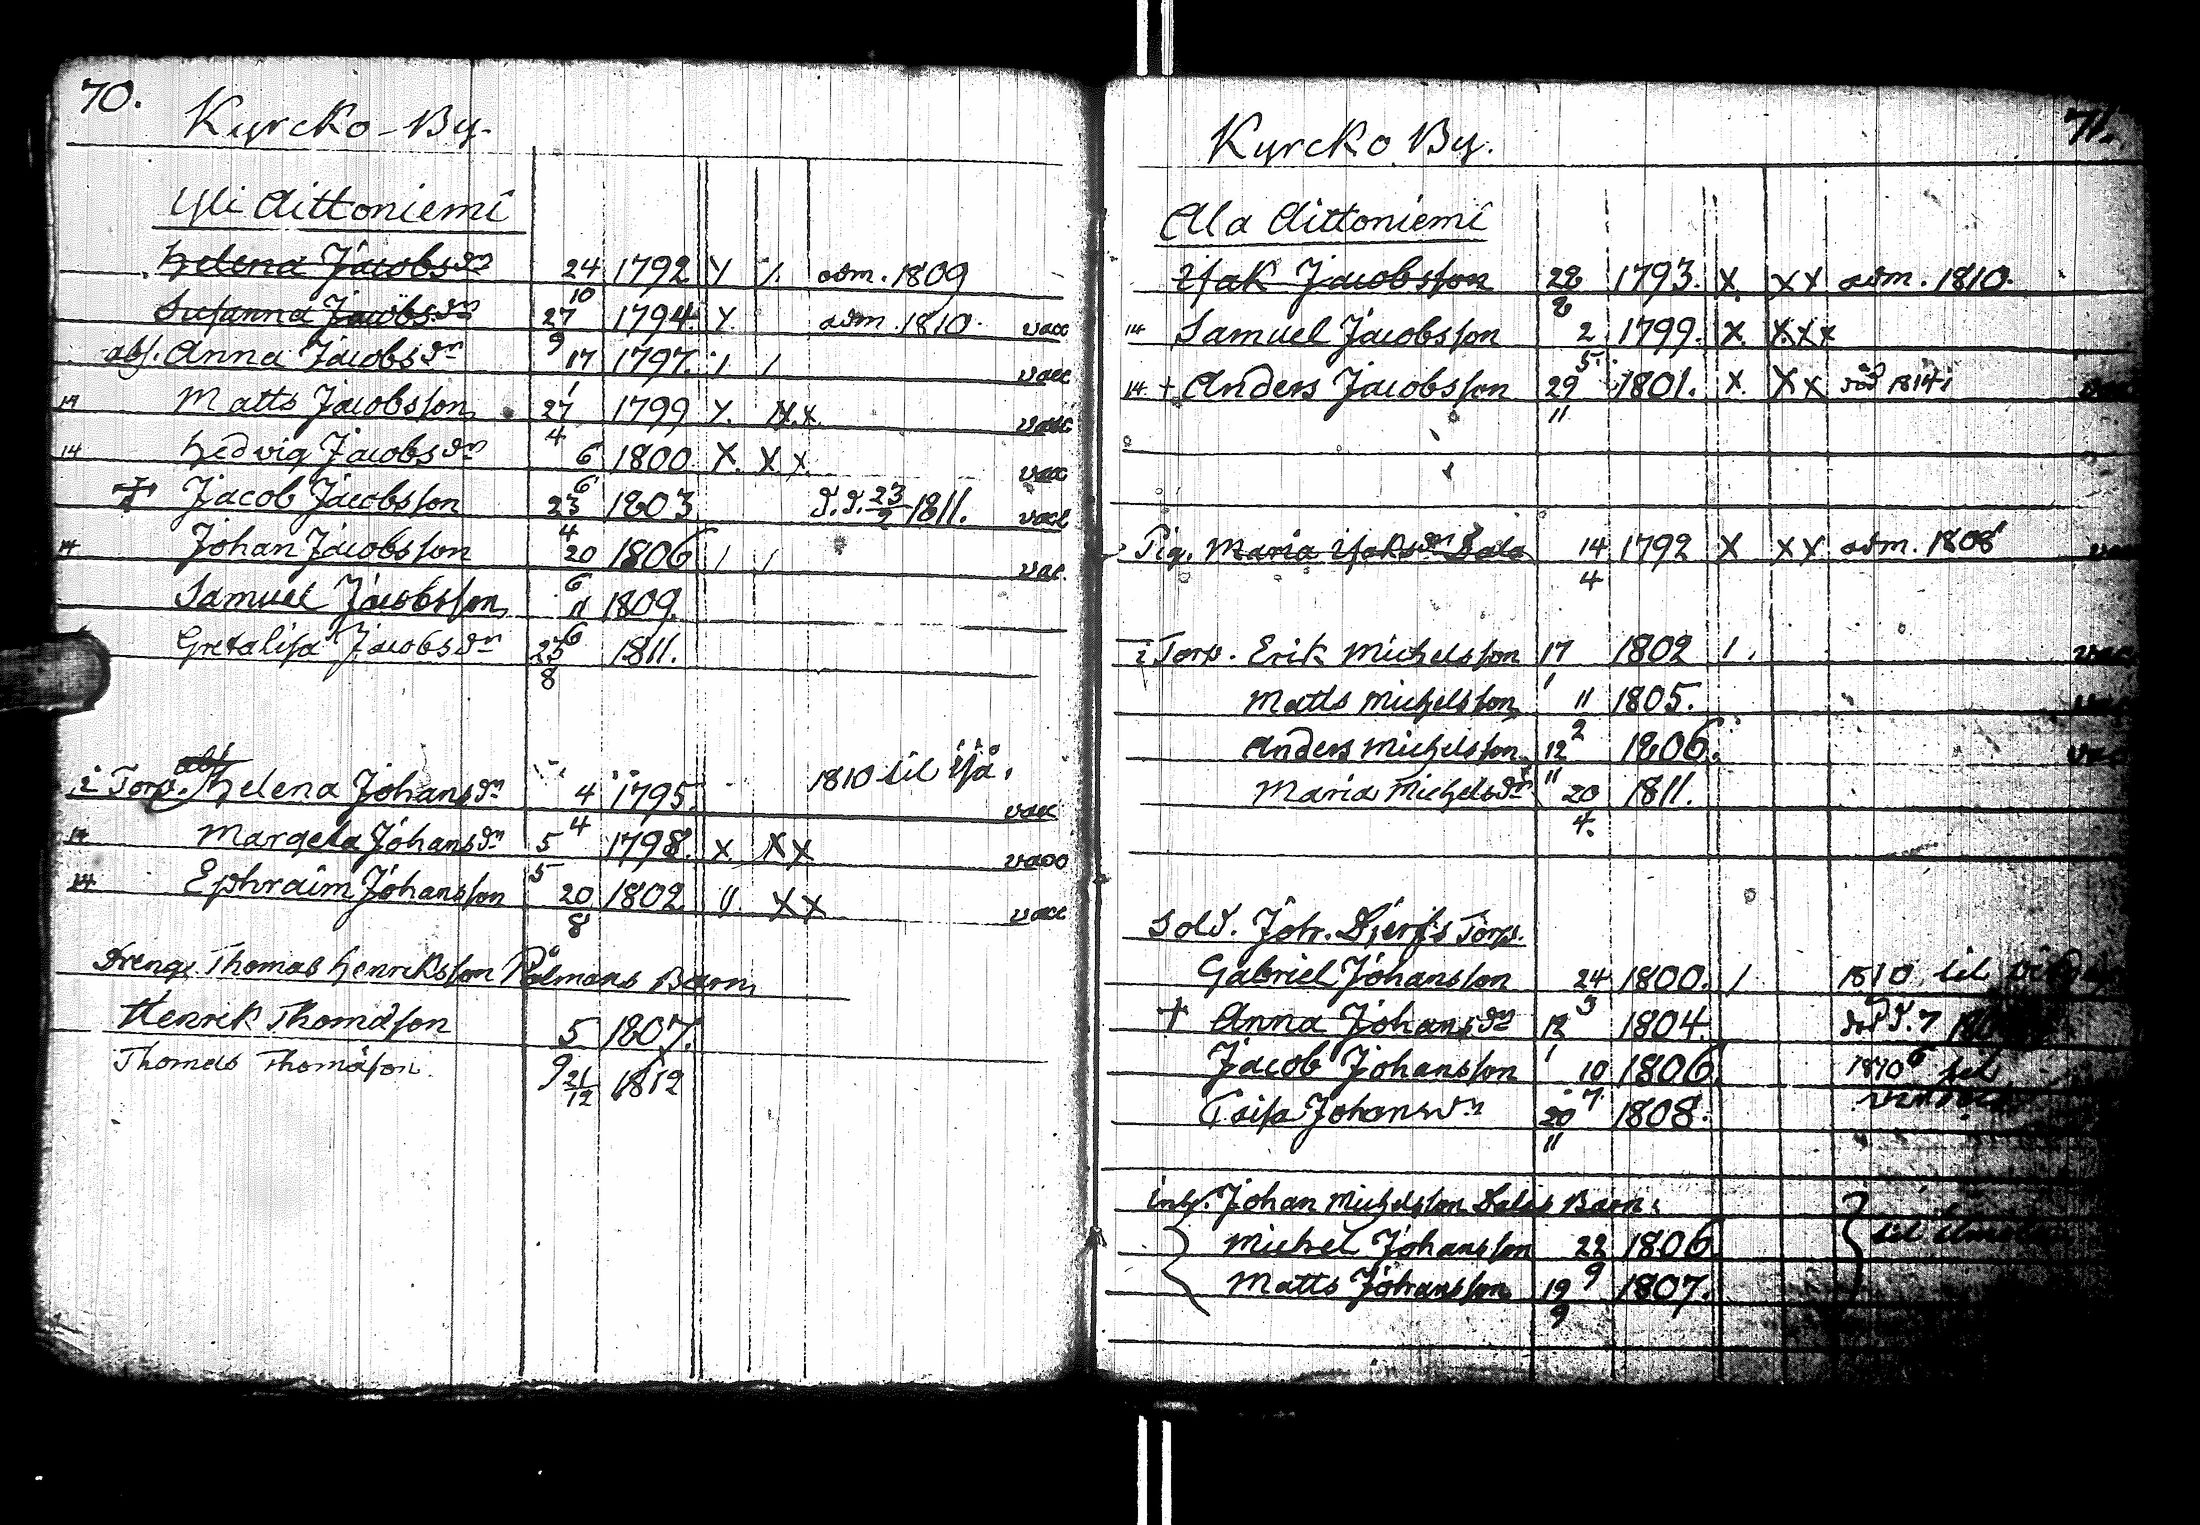 70.
Kyrcko-By.
Yli Aittoniemi
Helena Jacobsdr 24/10 1792 Y /. adm. 1809
Susanna Jacobsdr 27/9 1794. Y. adm. 1810. vacc
abs. Anna Jacobsdr 17/1 1797. / / vacc
14 Matts Jacobsson 27/4 1799 Y. XX.x. vacc
14 Hedvig Jacobsdr 6/6 1800 X. X x. vacc
+ Jacob Jacobsson 23/4 1803 d.d. 23/2 1811. vacc
14 Johan Jacobsson 20/6 1806 / / vac.
Samuel Jacobsson 11/6 1809.
Gretalisa Jacobsdr 25/8 1811.
abs
i Torp. Helena Johansdr 4/4 1795. 1810 til vacc
14 Margeta Johansdr 5/5 1798. x XX vacc
14 Ephraim Johansson 20/8 1802 11. XX vacc
Dreng. Thomas Henriksson Pålmans Barn
Henrik Thomasson 5/9 1807.
Thomas Thomasson. 21/12 1812
71.
Kyrcko By.
Ala Aittoniemi
Isak Jacobsson 28/8 1793. X. XX adm. 1810.
14 Samuel Jacobsson 2/5 1799. X. X.XX
14 + Anders Jacobsson 29/11 1801. X. XX död 1814
Pig. Maria Isaksdr Dala 14/4 1792 X XX adm. 1808
i Torp. Erik Michelsson 17/1 1802 1. vacc
Matts Michelsson 11/2 1805.
Anders Michelsson 12/11 1806.
Maria Michelsdr 20/4. 1811.
Sold. Joh. Djerfs Torp.
Gabriel Johansson 24/3 1800. / 1810 til
+ Anna Johansdr 12/1 1804. död d. 7
Jacob Johansson 10/7 1806. 1810 til
Caisa Johansdr 20/11 1808.
inh. Johan Michelsson Dalas Barn:
Michel Johansson 22/9 1806. til
Matts Johansson 19/9 1807.